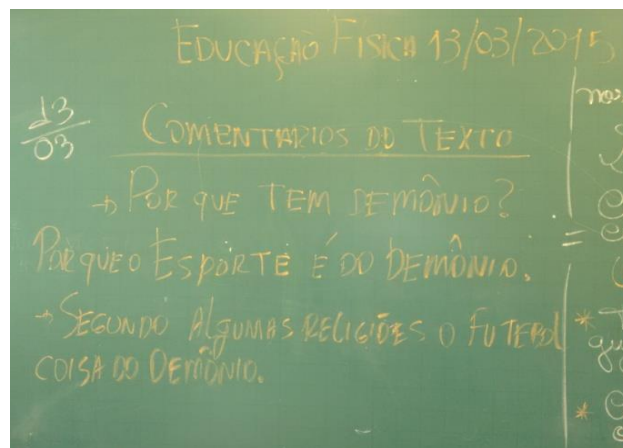 EDUCAÇÃO FÍSICA 13/03/2015
13/03
COMENTARIOS DO TEXTO
→ POR QUE TEM DEMÔNIO?
PORQUE O ESPORTE É DO DEMÔNIO.
→ SEGUNDO ALGUMAS RELIGIÕES O FUTEBOL
COISA DO DEMÔNIO.